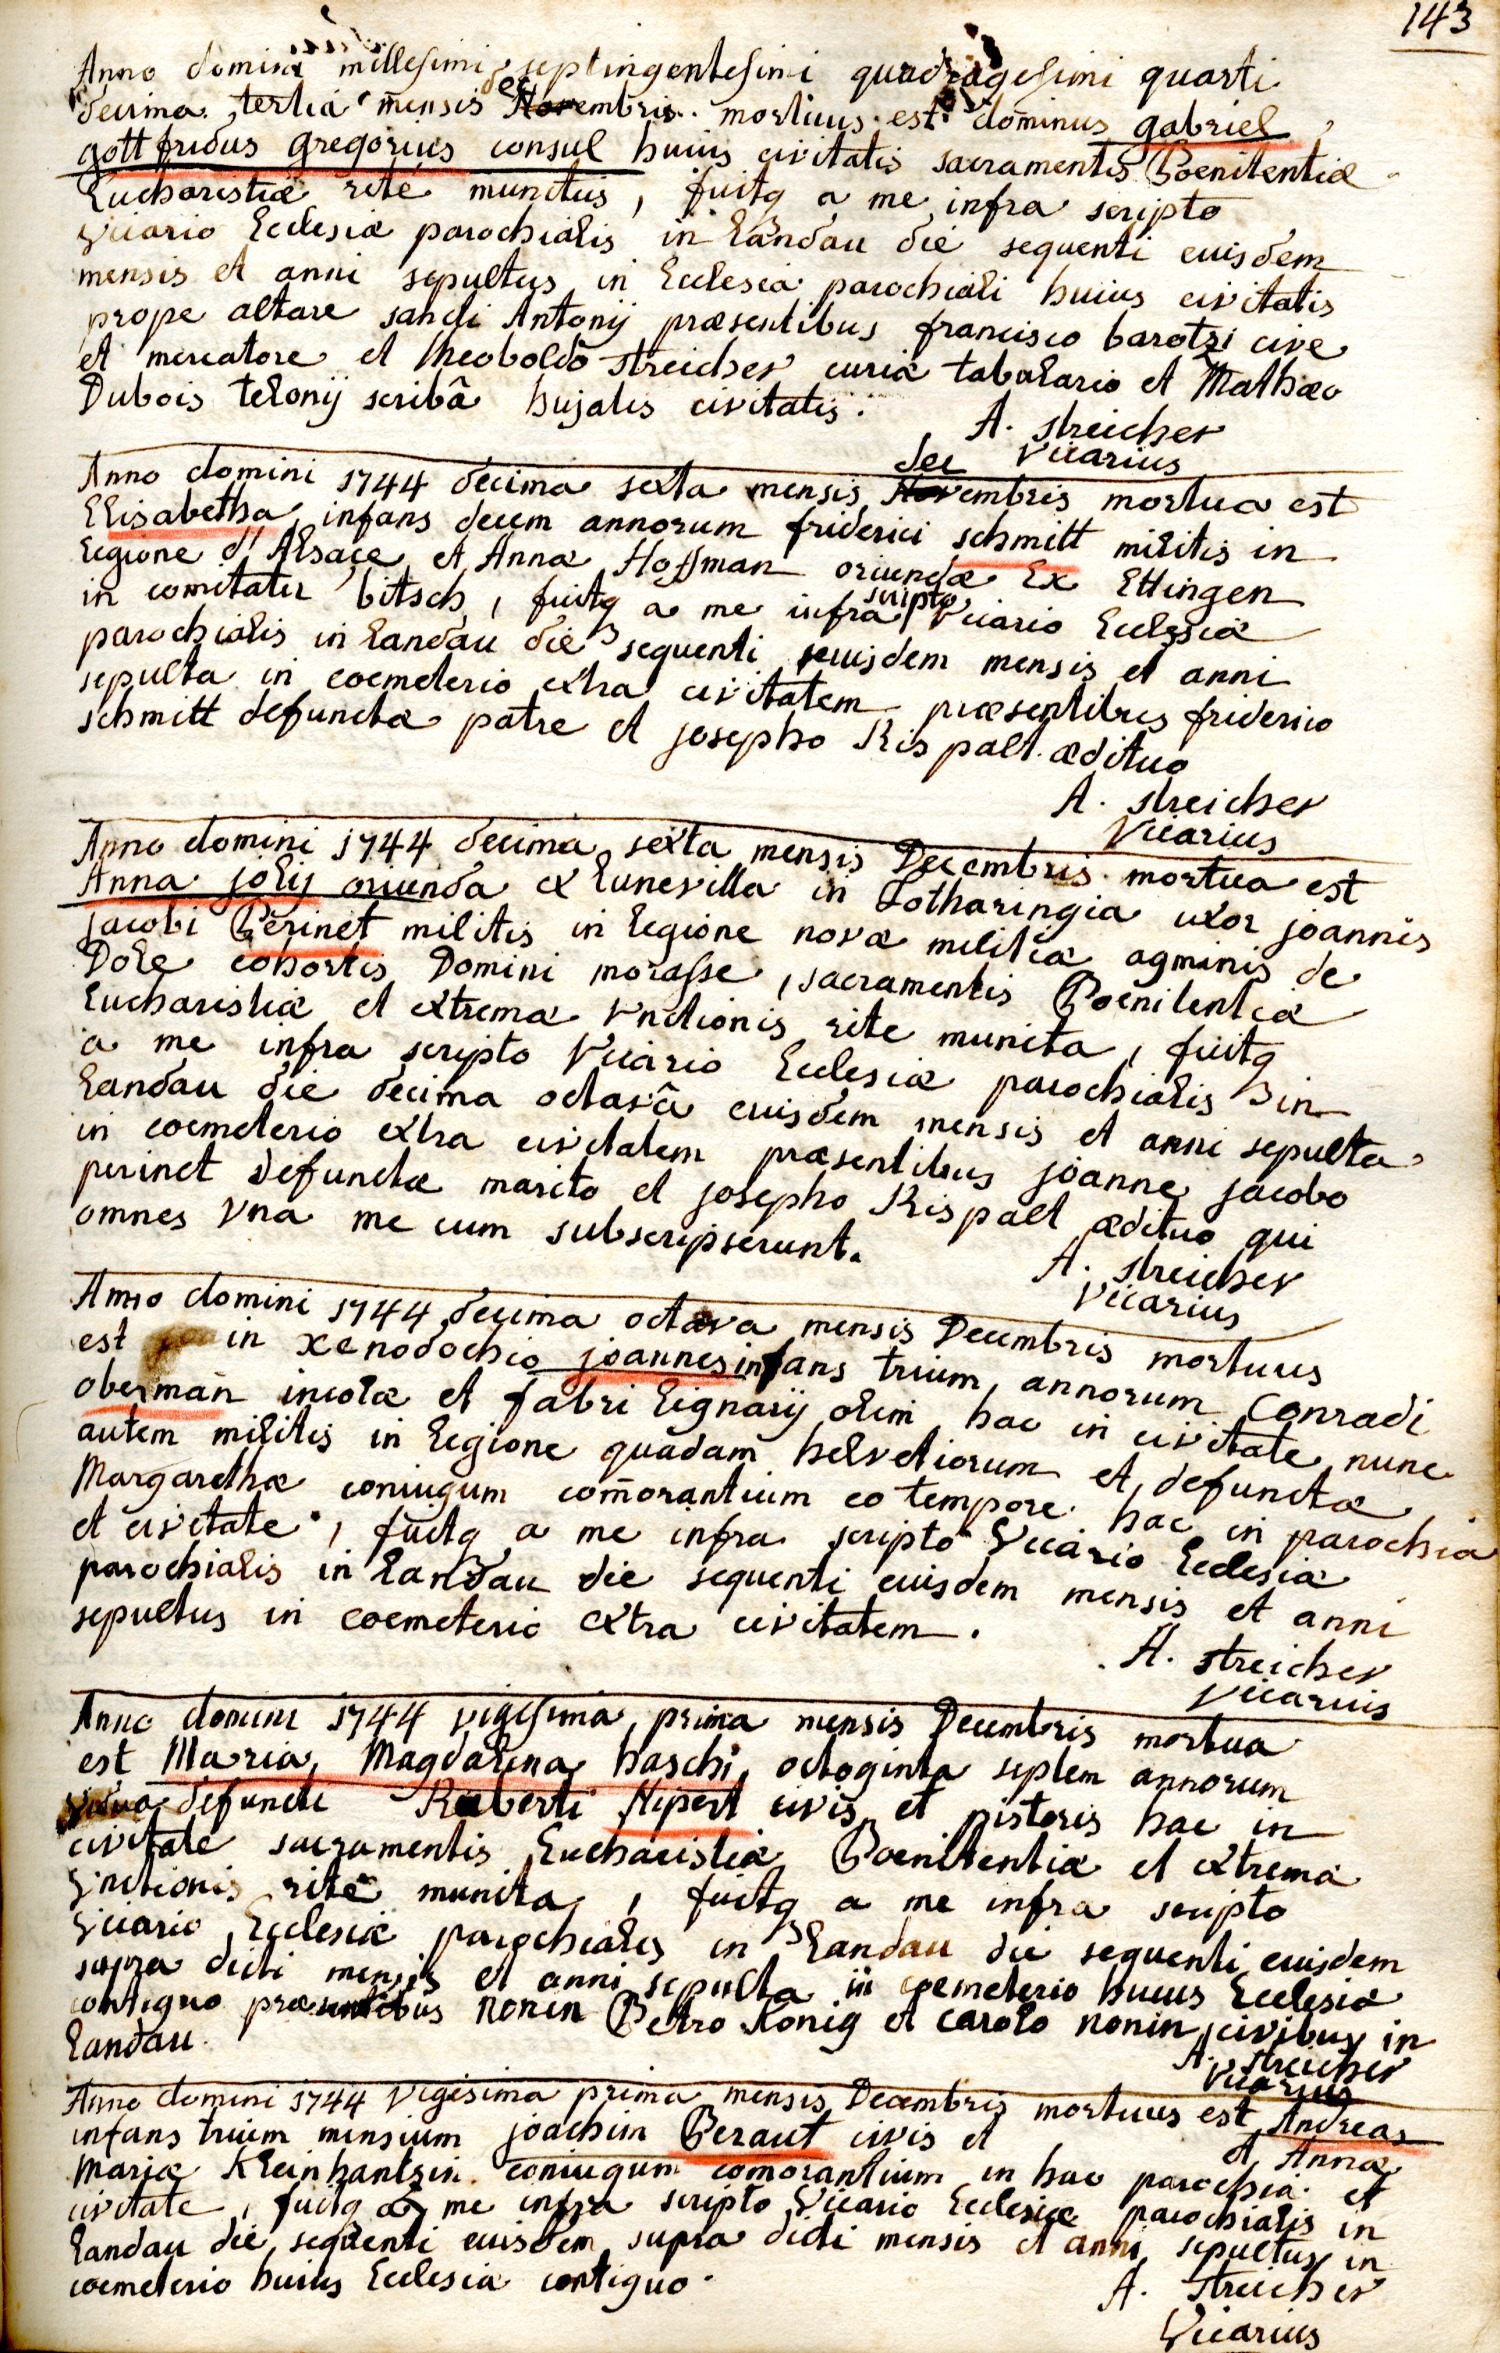 143
Anno domini millesimi septingentesimi quadragesimi quarti
decima tertia mensis Decembris mortuus est dominus gabriel
gottfridus gregorius consul huius civitatis sacramentis Poenitentiæ
Eucharistiæ rité munitus, fuitq a me infra scripto
Vicario Ecclesiæ parochialis in Landau die sequenti eiusdem
mensis et anni sepultus in Ecclesia parochiali huius civitatis
prope altare sancti Antonij præsentibus francisco barotzi cive
et mercatore et theobaldo streicher curiæ tabulario et Mathæo
Dubois telonij scribâ hujatis civitatis.
A. streicher
Vicarius
Anno domini 1744 decima sexta mensis Novembris mortua est
dec
Elisabetha infans decem annorum friderici schmitt militis in
legione d'Alsace et Annæ Hoffman oriundæ Ex Ettingen
in comitatu bitsch, fuitq a me infra scripto Vicario Ecclesiæ
parochialis in Landau die sequenti euisdem mensis et anni
sepulta in coemeterio extra civitatem præsentibus friderico
schmitt defunctæ patre et josepho Rispalt ædituo
A. streicher
Vicarius
Anno domini 1744 decima sexta mensis Decembris mortua est
Anna jolij oriunda ex Lunevilla in Lotharingia uxor joannis
jacobi Perinet militis in legione novæ militiæ agminis de
Dole cohortis Domini morasse, sacramentis Poenitentiæ
Eucharistiæ et extremæ Vnctionis rite munita, fuitq
a me infra scripto Vicario Ecclesiæ parochialis in
Landau die decima octavâ euisdem mensis et anni sepulta
in coemeterio extra civitatem præsentibus joanne jacobo
perinet defunctæ marito et josepho Rispalt ædituo qui
omnes Vna me cum subscripserunt.
A. streicher
Vicarius
Anno domini 1744 decima octava mensis Decembris mortuus
est in xenodochio joannes infans trium annorum Conradi
oberman incolæ et fabri lignarij olim hac in civitate nunc
autem militis in legione quadam helvetiorum et defunctæ
Margarethæ coniugum com̄orantium eo tempore hac in parochia
et civitate, fuitq a me infra scripto Vicario Ecclesiæ
parochialis in Landau die sequenti euisdem mensis et anni
sepultus in coemeterio extra civitatem.
A. streicher
Vicarius
Anno domini 1744 vigesima prima mensis Decembris mortua
est Maria Magdalena haschi octoginta septem annorum
vidua defuncti Ruberti Hipert civis et pistoris hac in
civitate sacramentis Eucharistiæ Poenitentiæ et extremæ
Vnctionis ritè munita, fuitq a me infra scripto
Vicario Ecclesiæ parochialis in Landau die sequenti euisdem
supra dicti mensis et anni sepulta in coemeterio huius Ecclesiæ
contiguo præsentibus nonin Petro König et carolo nonin civibus in
Landau.
A. streicher
Vicarius
Anno domini 1744 vigesima prima mensis Decembris mortuus est Andreas
infans trium mensium joachim Beraut civis et et Annæ
Mariæ Kleinhantzin coniugum comorantium in hac parochia et
civitate, fuitq a me infra scripto Vicario Ecclesiæ parochialis in
Landau die sequenti euisdem supra dicti mensis et anni sepultus in
coemeterio huius Ecclesiæ contiguo.
A. streicher
Vicarius